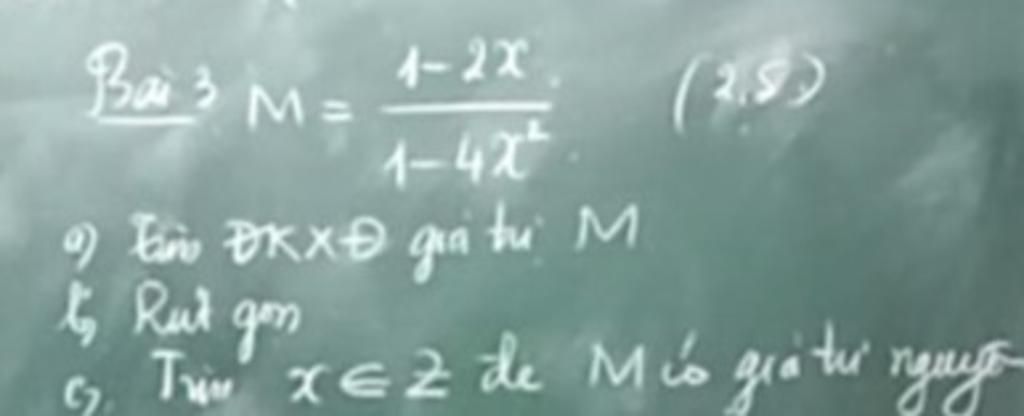 Bài 3 M = \frac{1-2x}{1-4x^2} (2,5)
a) Tìm ĐKXĐ giá trị M
b, Rút gọn
c). Tìm x ∈ Z để M có giá trị nguyên